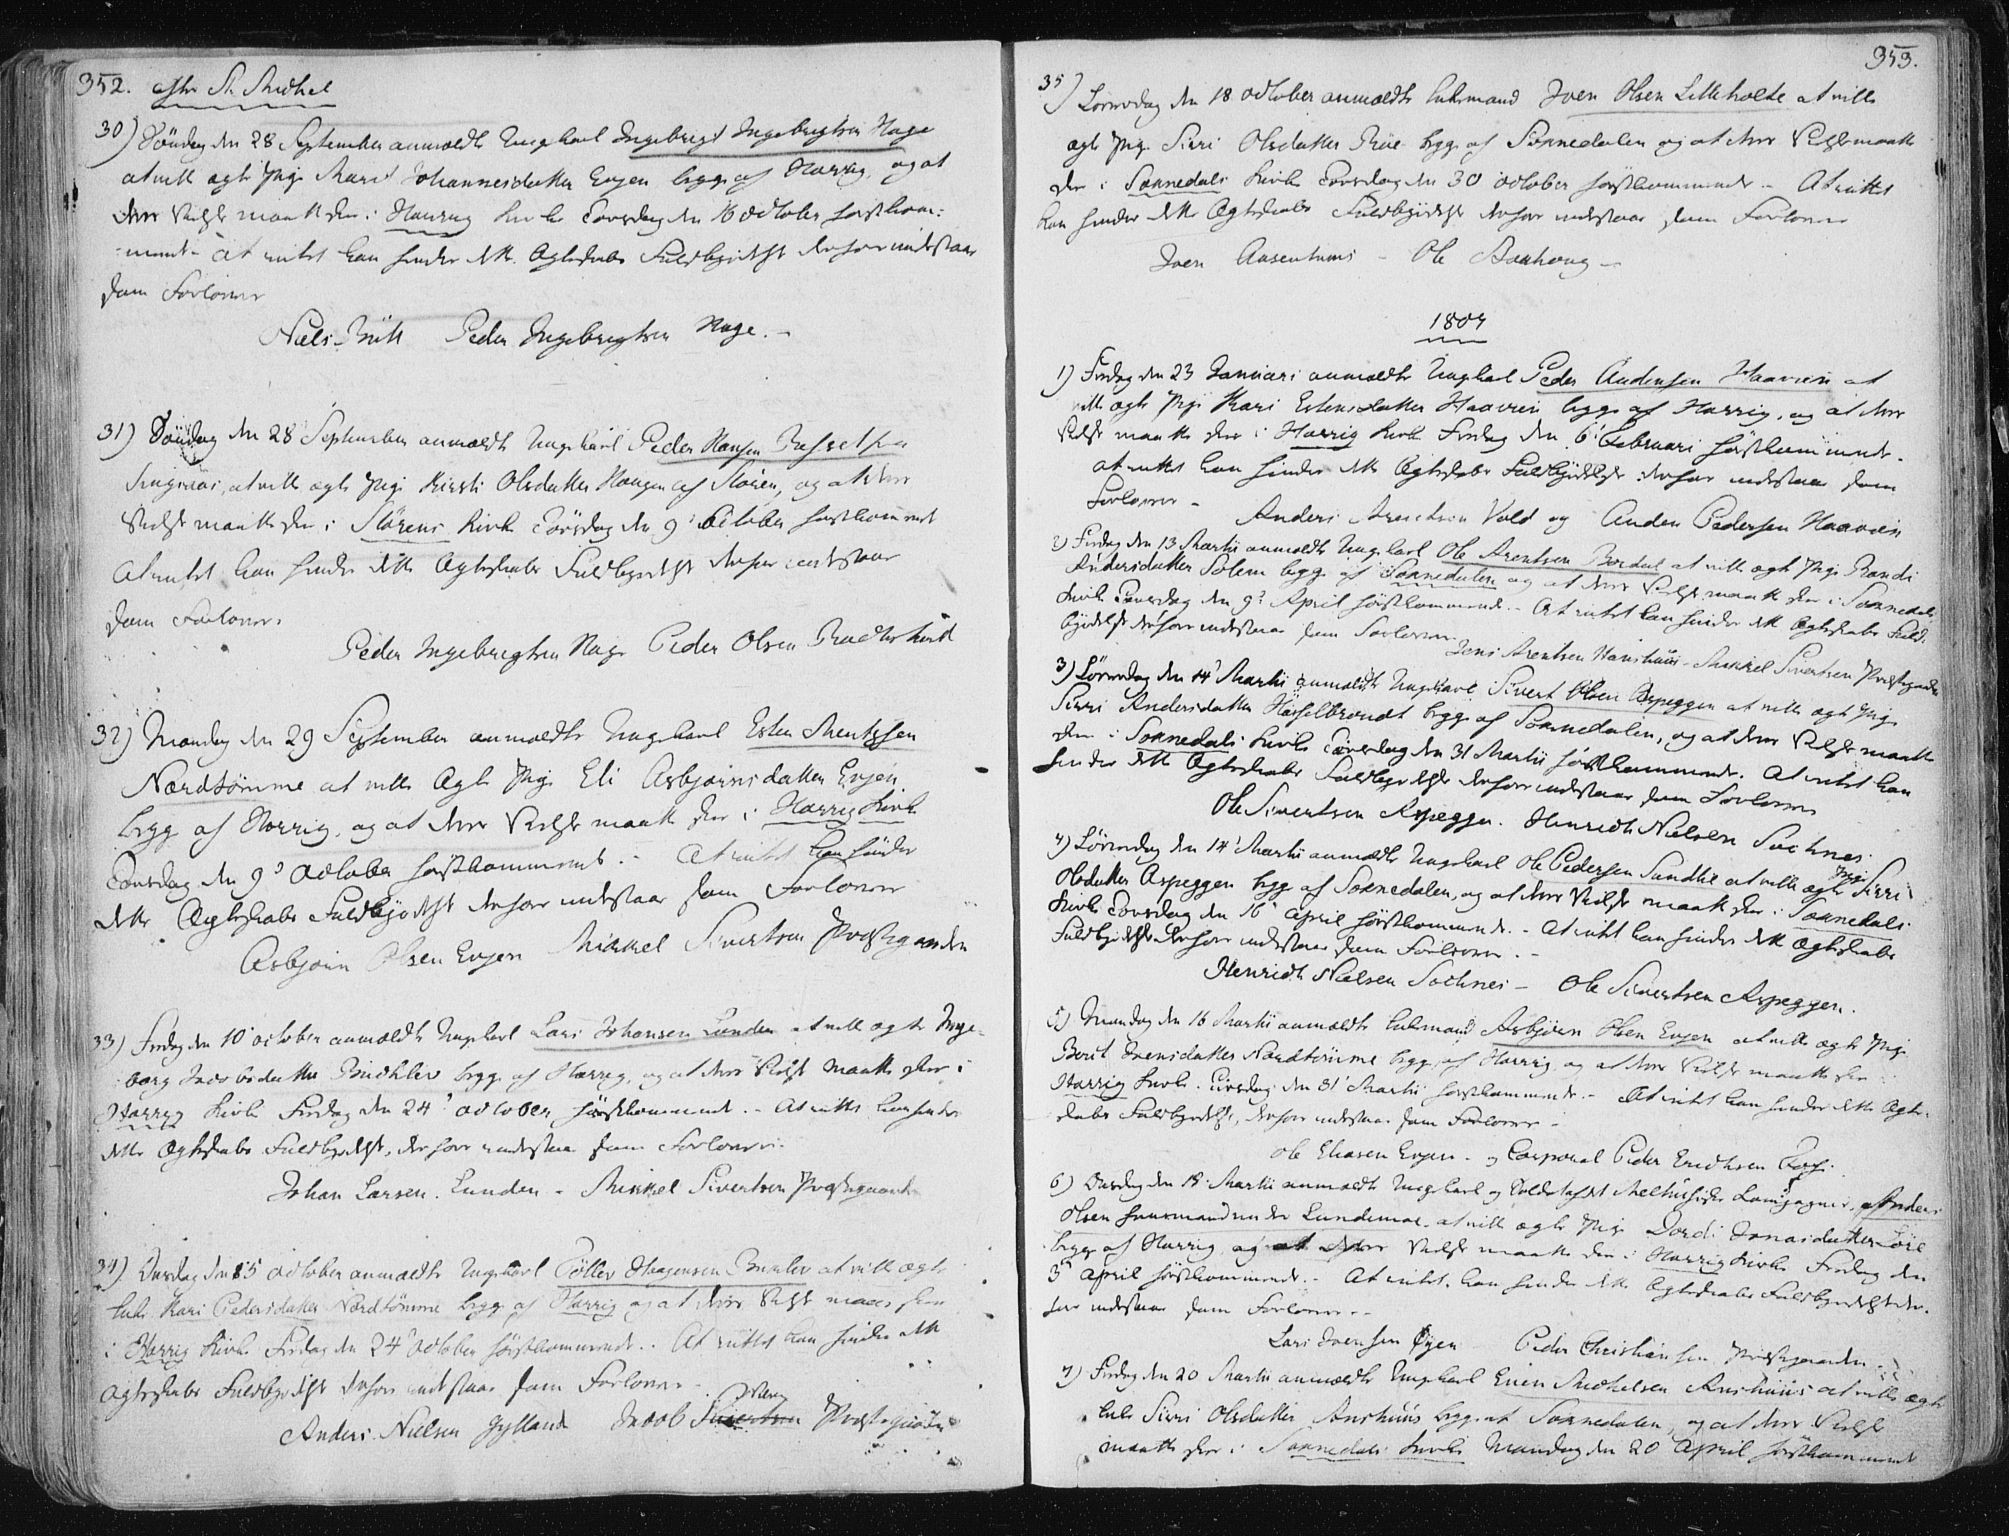 352. efter St. Michel
30) Søndag den 28 September anmældte Ungkarl Ingebrigt Ingebrigtsen Hage
at ville ægte Pige Marit Johannesdatter Engen begge af Horrig, og at
deres Vielse maatte skee i Horrig Kirke Torsdag den 16 October førstkom-
mende - At intet kan hindre dette Ægteskabs Fuldbyrdelse derfore indestaar
som Forlovere
Niels Peder Ingebrigtsen Hage.
31) Søndag den 28 September anmældte Ungkarl Peder Hansen
at ville ægte Pige Kirsti Olsdatter Haugen af Støren, og at deres
Vielse maatte skee i Størens Kirke Torsdag den 9 October førstkommende
At intet kan hindre dette Ægteskabs Fuldbyrdelse derfor indestaar
som Forlovere
Peder Ingebrigtsen Hage Peder Olsen
32) Mandag den 29 September anmældte Ungkarl Esten Mentzsen
Nordtømme at ville Ægte Pige Eli Asbjørnsdatter Engen
begge af Horrig, og at deres Vielse maatte skee i Horrig Kirke
Torsdag den 9 October førstkommende. - At intet kan hindre
dette Ægteskabs Fuldbyrdelse derfore indestaar som Forlovere
Asbjørn Olsen Engen Mikkel Sivertsen Præstegaarden
33) Fredag den 10 October anmældte Ungkarl Lars Johansen Lunden at ville ægte Inge-
borg Jacobsdatter begge af Horrig, og at deres Vielse maatte skee i
Horrig Kirke Fredag den 24 October førstkommende. - At intet kan hindre
dette Ægteskabs Fuldbyrdelse, derfore indestaar som Forlovere.
Johan Larsen Lunden - Mikkel Sivertsen Præstegaarden
34) Onsdag den 15 October anmældte Ungkarl Tøllev Haagensen at ville ægte
Enke Kari Pedersdatter Nordtømme begge af Horrig og at deres Vielse maatte skee
i Horrig Kirke Fredag den 24 October førstkommende. At intet kan hindre dette
Ægteskabs Fuldbyrdelse derfore indestaar som Forlovere
Anders Nielsen Jylland Jacob Præstegaarden
353.
35) Løverdag den 18 October anmældte Enkemand Joen Olsen Lilleholte at ville
ægte Pige Sirri Olsdatter begge af Sonnedalen og at deres Vielse maatte
skee i Sonnedals Kirke Torsdag den 30 October førstkommende - At intet
kan hindre dette Ægteskabs Fuldbyrdelse derfore indestaar som Forlovere
Joen - Ole
1807
1) Fredag den 23 Januari anmældte Ungkarl Peder Andersen Haaven at
ville ægte Pige Kari Estensdatter Haaven begge af Horrig, og at deres
Vielse maatte skee i Horrig Kirke Fredag den 6 Februari førstkommende.
At intet kan hindre dette Ægteskabs Fuldbyrdelse derfor indestaar som
Forlovere - Anders Arentsen Vold og Anders Pedersen Haaven
2) Fredag den 13 Martii anmældte Ungkarl Ole Arentsen Bordal at ville ægte Pige Randi
Andersdatter Solem begge af Sonnedalen og at deres Vielse maatte skee i Sonnedals
Kirke Torsdag den 9 April førstkommende - At intet kan hindre dette Ægteskabs Fuld-
byrdelse derfore indestaar som Forlovere
Jens Arentsen - Mikkel Sivertsen Præstegaarden
3) Løverdag den 14 Martii anmældte Ungkarl Sivert Olsen Aspeggen at ville ægte Pige
Sirri Andersdatter Hasselbrandt begge af Sonnedalen, og at deres Vielse maatte
skee i Sonnedals Kirke Tirsdag den 31 Martii førstkommende. At intet kan
hindre dette Ægteskabs Fuldbyrdelse derfore indestaar som Forlovere
Ole Sivertsen Aspeggen. Henrich Nielsen Sochnes
4) Løverdag den 14 Martii anmældte Ungkarl Ole Pedersen Sundlie at ville ægte Pige Sirri
Olsdatter Aspeggen begge af Sonnedalen, og at deres Vielse maatte skee i Sonnedals
Kirke Torsdag den 16 April førstkommende. - At intet kan hindre dette Ægteskabs
Fuldbyrdelse derfore indestaar som Forlovere. -
Henrich Nielsen Sochnes - Ole Sivertsen Aspeggen.
5) Mandag den 16 Martii anmældte Enkemand Asbjørn Olsen Engen at ville ægte Pige
Berit Joensdatter Nordtømme begge af Horrig og at deres Vielse maatte skee i
Horrig Kirke Tirsdag den 31 Martii førstkommende - At intet kan hindre dette Ægte-
skabs Fuldbyrdelse, derfore indestaar som Forlovere -
Ole Eliasen Engen - og Corporal Peder Erichsen
6) Onsdag den 18 Martii anmældte Ungkarl og Soldat af det Melhusiske Compagnie Anders
Olsen Huusmand under Lundemoe at ville ægte Pige Dordi Jonasdatter
begge af Horrig, og at deres Vielse maatte skee i Horrig Kirke Fredag den
3 April førstkommende. - At intet kan hindre dette Ægteskabs Fuldbyrdelse der-
fore indestaar som Forlovere. -
Lars Joensen Øyen Peder Christiansen Præstegaarden
7) Fredag den 20 Martii anmældte Ungkarl Even Michelsen Anshuus at ville ægte
Enke Sirri Olsdatter Anshuus begge af Sonnedalen, og at deres Vielse
maatte skee i Sonnedals Kirke Mandag den 20 April førstkommende